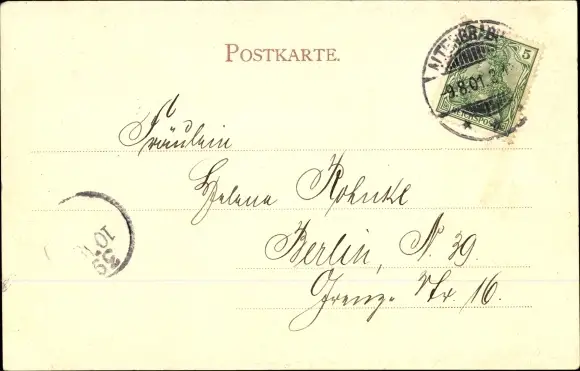 POSTKARTE.
ALTENGRABOW
9.8.01. 2
5
REICHSPOST
Fräulein
Helena Rohnke
Berlin, N. 39.
Grenz-Str. 16.
39
10